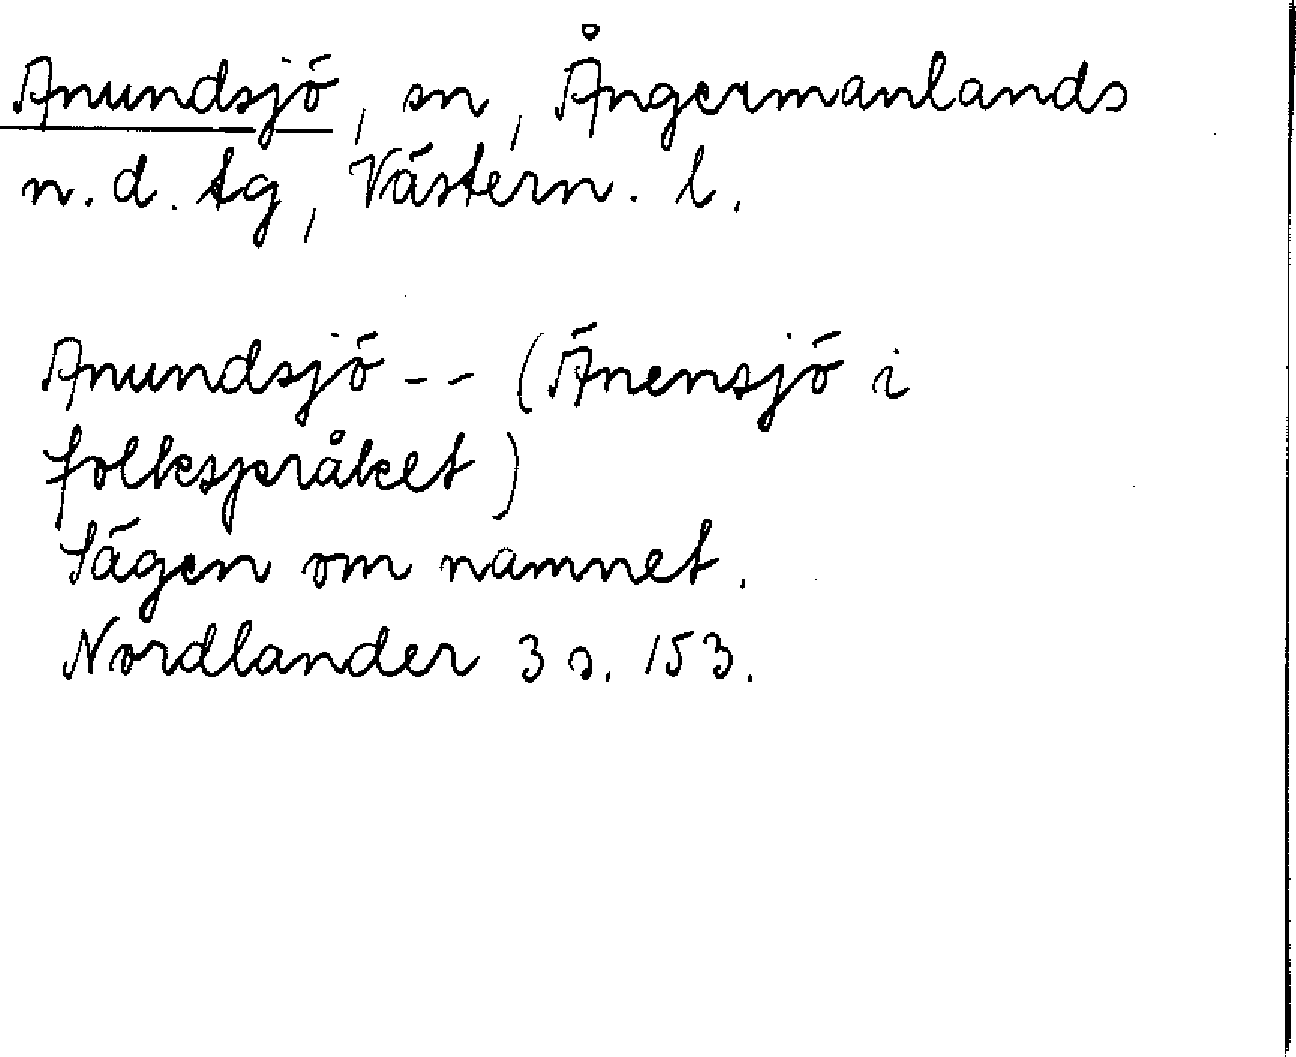 Anundsjö, sn, Ångermanlands
n. d. tg, Västern. l.
Anundsjö -- (Änensjö i
folkspråket)
Sägen om namnet.
Nordlander 3 s. 153.